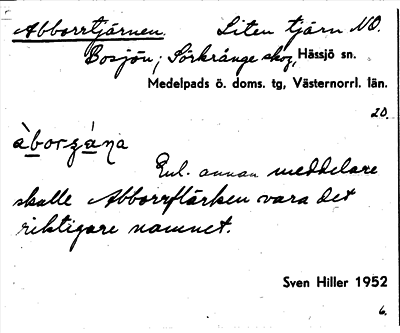 Abborrtjärnen. Liten tjärn NO.
Bosjön, Sörkrånge skog, Hässjö sn.
Medelpads ö. doms. tg, Västernorrl. län.
20.
Enl. annan meddelare
skulle Abborrflärken vara det
riktigare namnet.
Sven Hiller 1952
6.